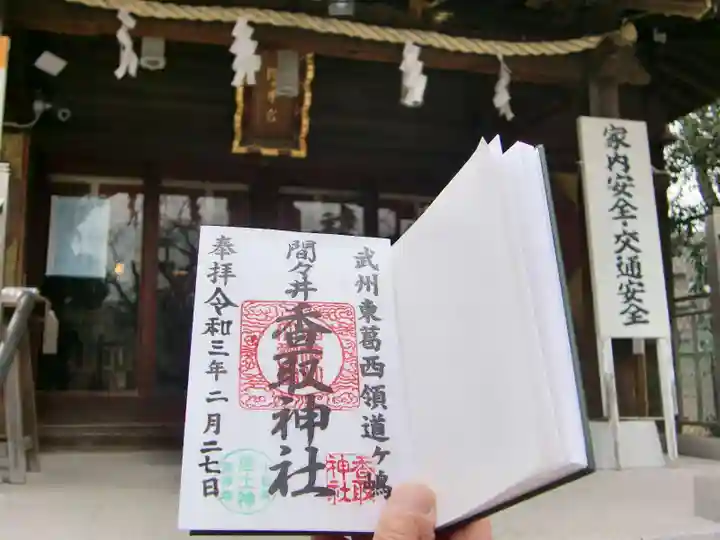 武州東葛西領道ヶ嶋
間々井
香取神社
奉拝令和三年二月二七日
香取
神社
産土神
家内安全・交通安全